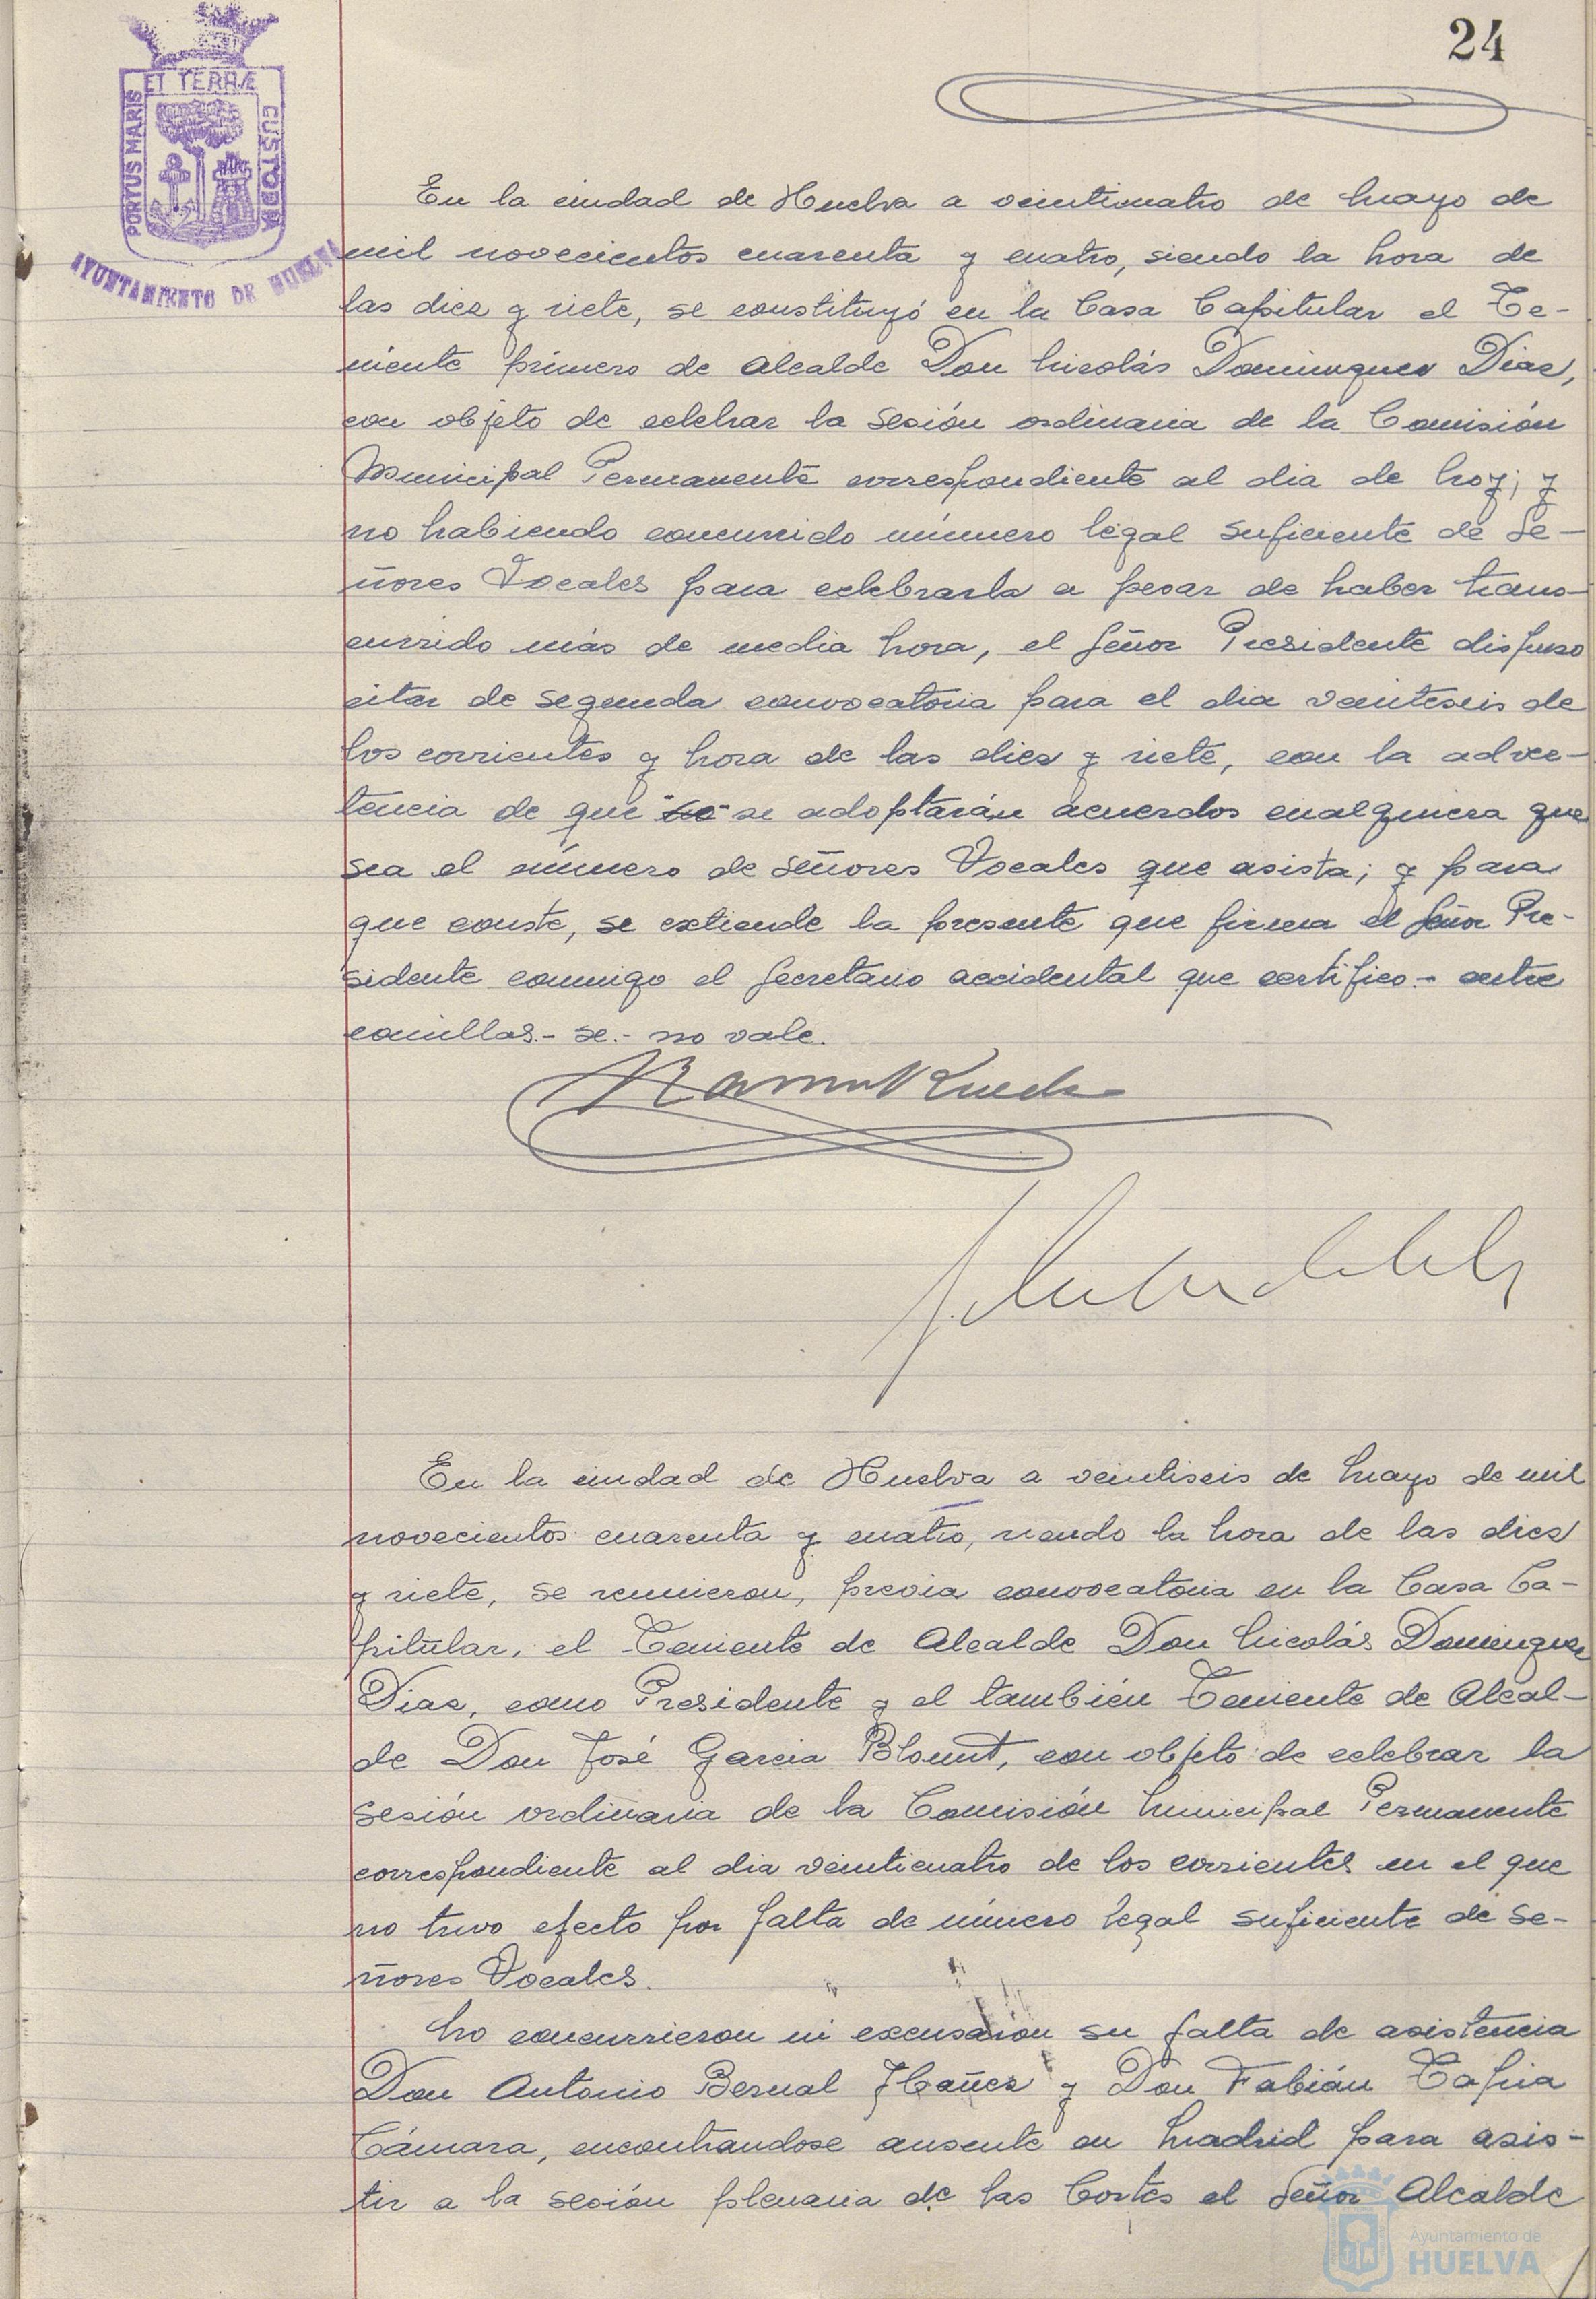 24
ET TERRÆ
PORTUS MARIS
CUSTODIA
AYUNTAMIENTO DE HUELVA
En la ciudad de Huelva a veinticuatro de Mayo de
mil novecientos cuarenta y cuatro, siendo la hora de
las diez y siete, se constituyó en la Casa Capitular el Te-
niente primero de Alcalde Don Nicolás Dominguez Diaz,
con objeto de celebrar la sesión ordinaria de la Comisión
Municipal Permanente correspondiente al dia de hoy; y
no habiendo concurrido número legal suficiente de Se-
ñores Vocales para celebrarla a pesar de haber trans-
currido más de media hora, el Señor Presidente dispuso
citar de segunda convocatoria para el dia veinteseis de
los corrientes y hora de las diez y siete, con la adver-
tencia de que se adoptarán acuerdos cualquiera que
sea el número de Señores Vocales que asista; y para
que conste, se extiende la presente que firma el Señor Pre-
sidente conmigo el Secretario accidental que certifico.- entre
comillas.- se.- no vale.
En la ciudad de Huelva a veintiseis de Mayo de mil
novecientos cuarenta y cuatro, siendo la hora de las diez
y siete, se reunieron, previa convocatoria en la Casa Ca-
pitular, el Teniente de Alcalde Don Nicolás Dominguez
Diaz, como Presidente y el también Teniente de Alcal-
de Don José Garcia Blount, con objeto de celebrar la
sesión ordinaria de la Comisión Municipal Permanente
correspondiente al dia veinticuatro de los corrientes en el que
no tuvo efecto por falta de número legal suficiente de Se-
ñores Vocales.
No concurrieron ni excusaron su falta de asistencia
Don Antonio Bernal Ibañez y Don Fabián Tapia
Cámara, encontrandose ausente en Madrid para asis-
tir a la sesión plenaria de las Cortes el Señor Alcalde
Ayuntamiento de
HUELVA